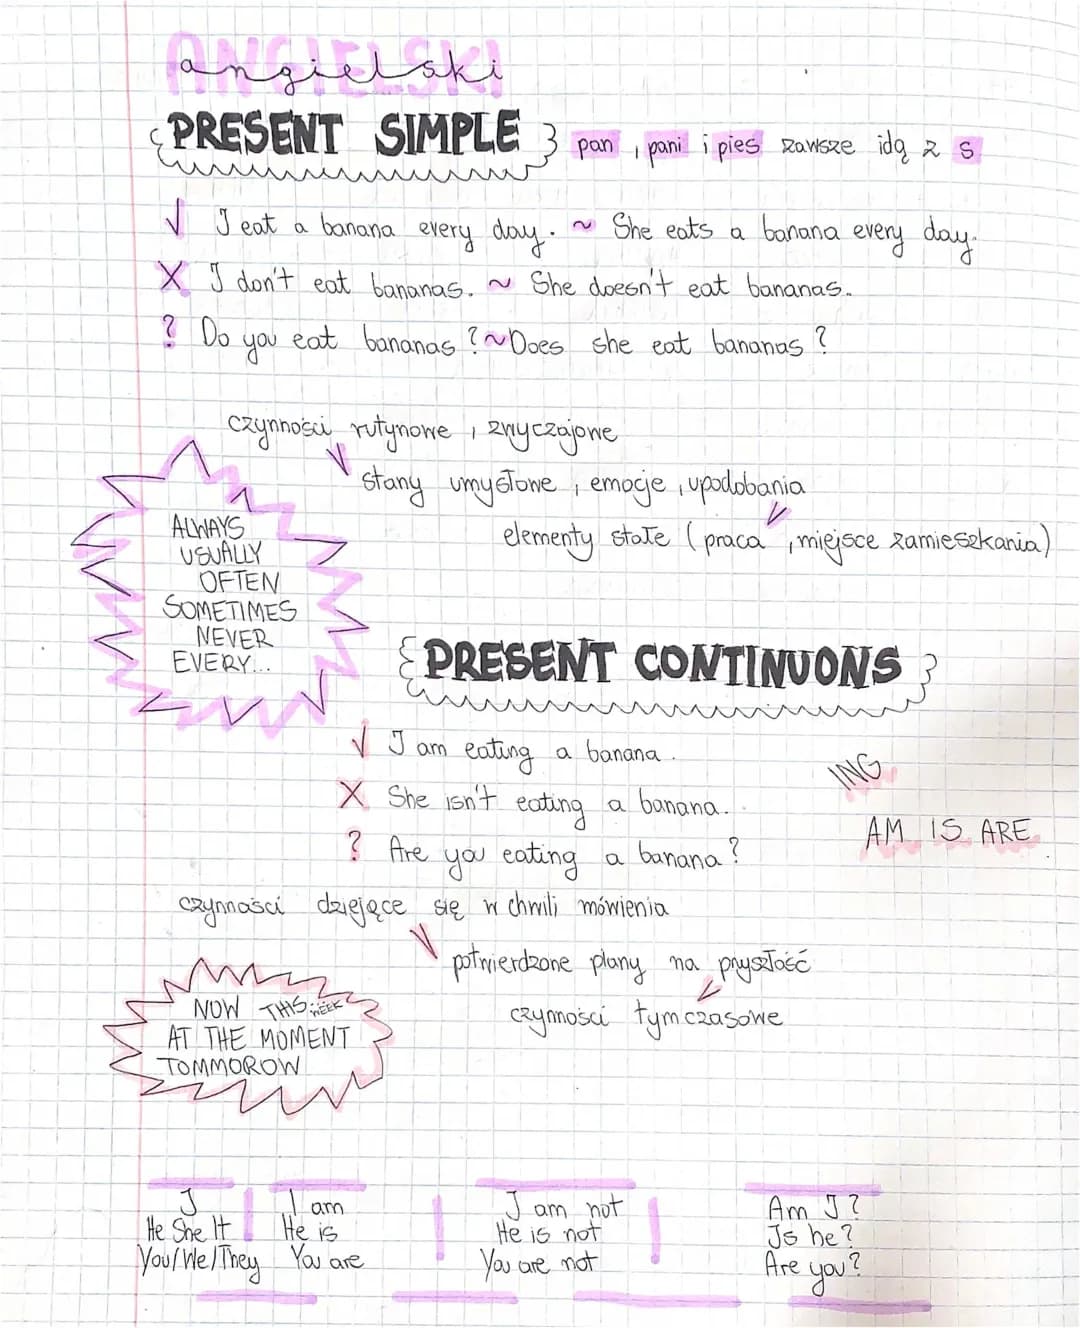 ANGIELSKI
angielski
PRESENT SIMPLE pan, pani i pies zawsze idą z s
√ I eat a banana every day. ~ She eats a banana every day.
X I don't eat bananas. ~ She doesn't eat bananas.
? Do you eat bananas? ~ Does she eat bananas?
czynności rutynowe, zwyczajowe
stany umysłowe, emocje, upodobania
elementy stałe (praca, miejsce zamieszkania)
ALWAYS
USUALLY
OFTEN
SOMETIMES
NEVER
EVERY...
PRESENT CONTINUONS
√ I am eating a banana.
X She isn't eating a banana.
? Are you eating a banana?
ING
AM IS ARE
czynności dziejące się w chwili mówienia
potwierdzone plany na przyszłość
czynności tymczasowe
NOW THIS WEEK
AT THE MOMENT
TOMMOROW
I
He She It
You/We/They
I am
He is
You are
I am not
He is not
You are not
Am I?
Is he?
Are you?